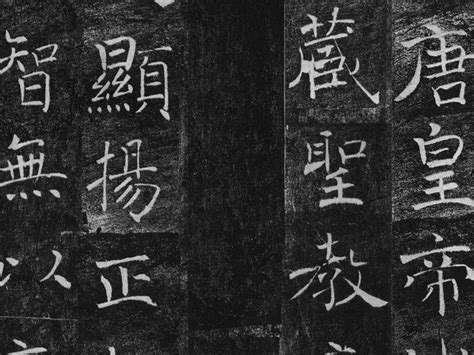 唐皇帝
藏聖教
顯揚正
智無以